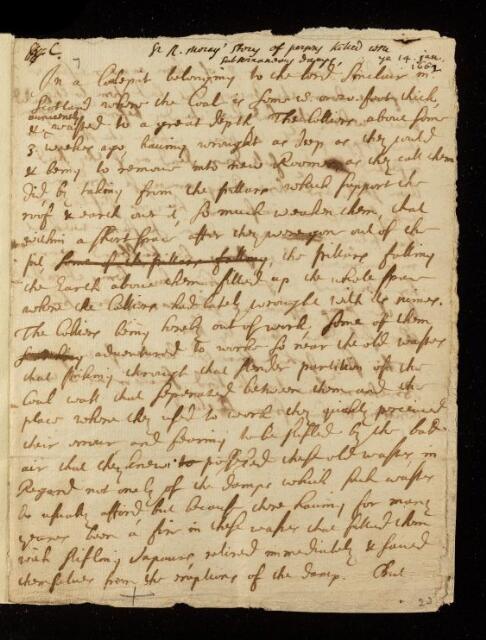 Sr R. Moray's story of persons killed with
subterraneous damps,
ye 14 Jan.
1662
In a Colepit belonging to the Lord Sinclair in
Scotland where the Coal is some thick,
anciently
& wasted to a great depth The Colliers about some
3 weekes ago, having wrought as deep as they could
& being to remove into new Roomes as they call them
did by taking from the pillars which support the
roof & earth over it, so much weaken them, that
within a short space after they were gon out of the
pit, the pillars falling
the Earth above them filled up the whole space
where the Colliers had lately wrought with its ruines.
The Colliers being hereby out of work, some of them
adventured to worke so near the old wastes
that striking through that slender partition of the
Coal wall that separated between them and the
place where they used to work they quickly perceived
their errour and fearing to be stifled by the bad
air that they knew to possessed these old wastes, in
Regard not onely of the damps which such wastes
do usually afford but because there having for many
yeares been a fire in these wastes that filled them
with stifling vapours, retired immediately & saved
themselves from the eruptions of the damp. But